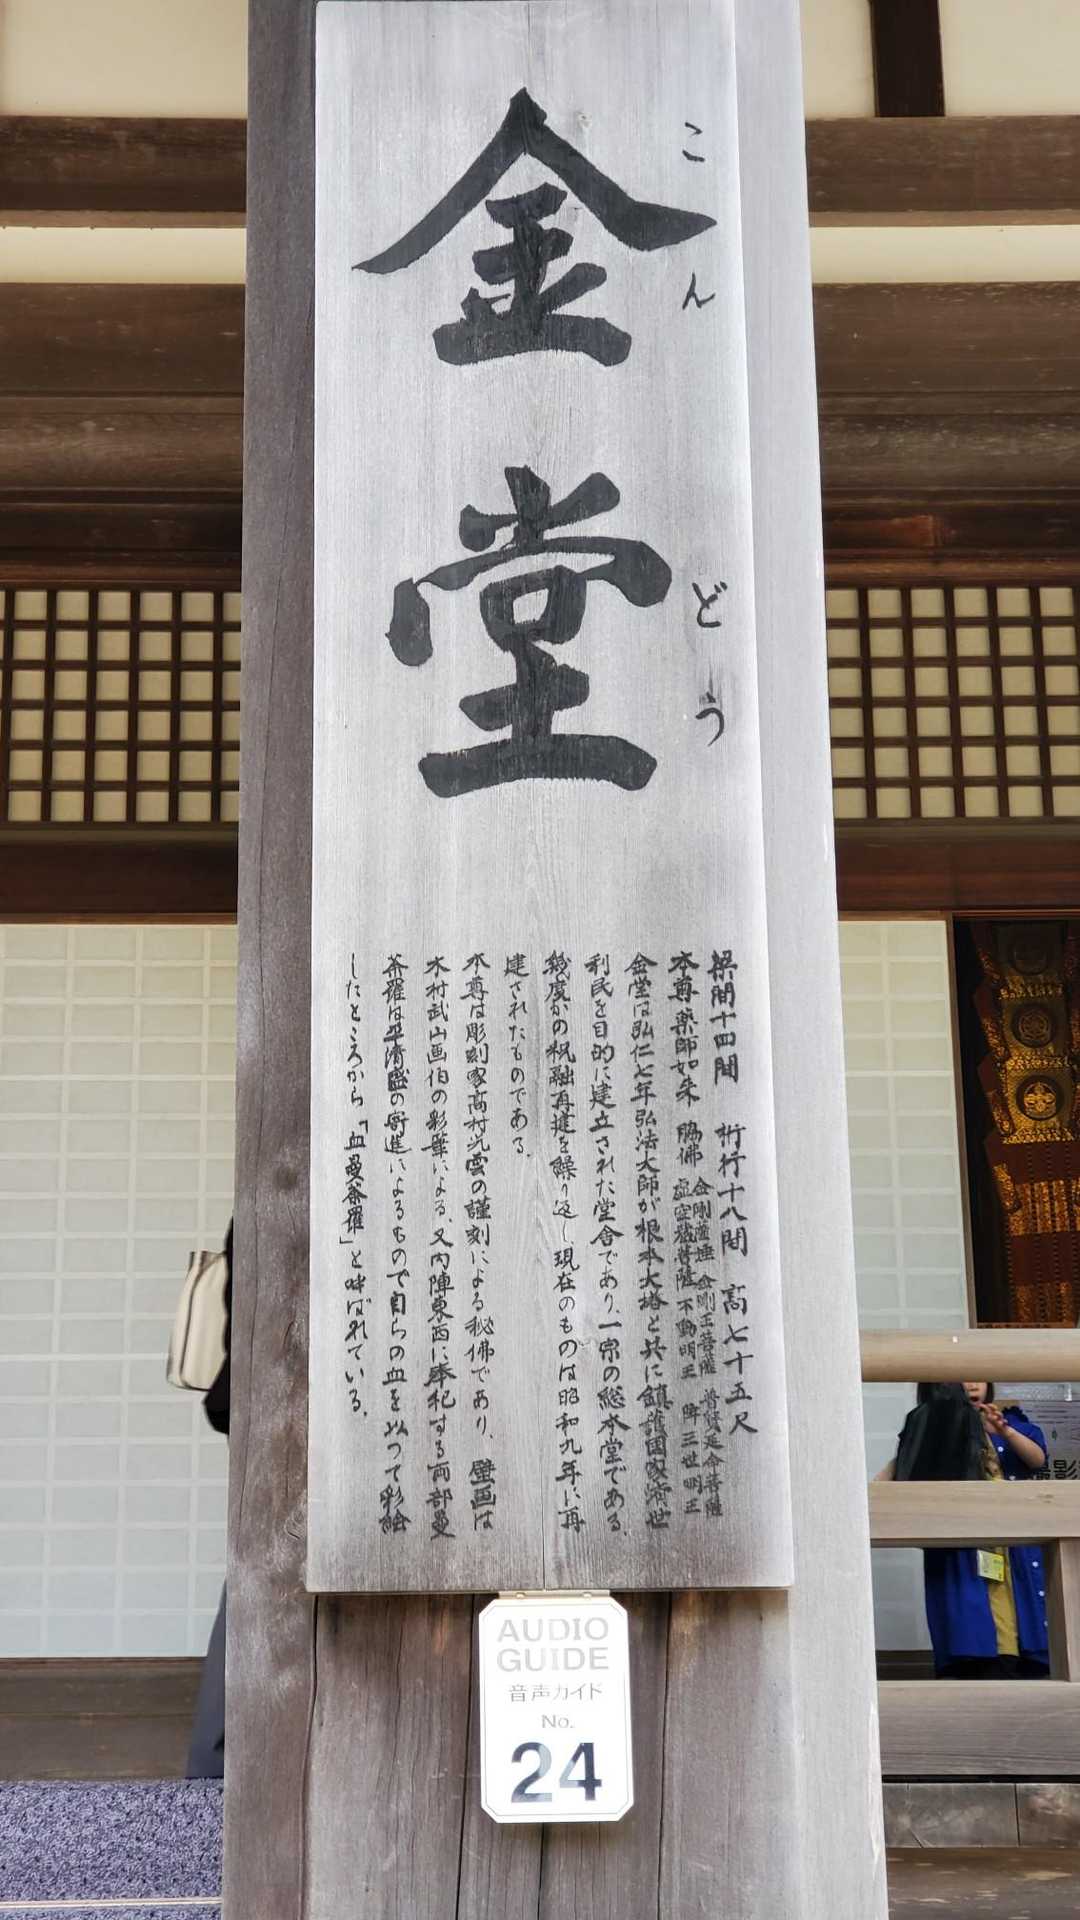 金堂
こんどう
梁間十四間 桁行十八間 高七十五尺
本尊薬師如来 脇佛 金剛薩埵 金剛王菩薩 普賢延命菩薩
虚空蔵菩薩 不動明王 降三世明王
金堂は弘仁七年弘法大師が根本大塔と共に鎮護国家済世
利民を目的に建立された堂舎であり、一宗の総本堂である。
幾度かの祝融再建を繰り返し現在のものは昭和九年に再
建されたものである。
本尊は彫刻家高村光雲の謹刻による秘佛であり、壁画は
木村武山画伯の彩筆による。又内陣東西に奉祀する両部曼
荼羅は平清盛の寄進によるもので自らの血を以つて彩絵
したところから「血曼荼羅」と呼ばれている。
AUDIO
GUIDE
音声ガイド
No.
24